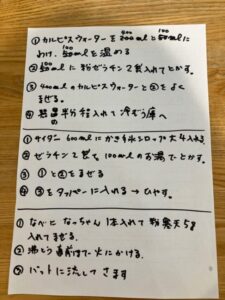 ① カルピスウォーターを 400mlと100mlに
わけ、100mlを温める
② 100mlに粉ゼラチン2袋入れてとかす。
③ 400mlのカルピスウォーターと②をよく
まぜる。
④ の半分程入れて冷ぞう庫へ
① サイダー 600mlにかき氷シロップ大4入れる。
② ゼラチン2袋を100mlのお湯でとかす。
③ ①と②をまぜる
④ ③をタッパーに入れる→ひやす。
① なべになっちゃん1本入れて粉寒天5g
入れてまぜる。
② 沸とう直前まで火にかける。
③ バットに流してさます